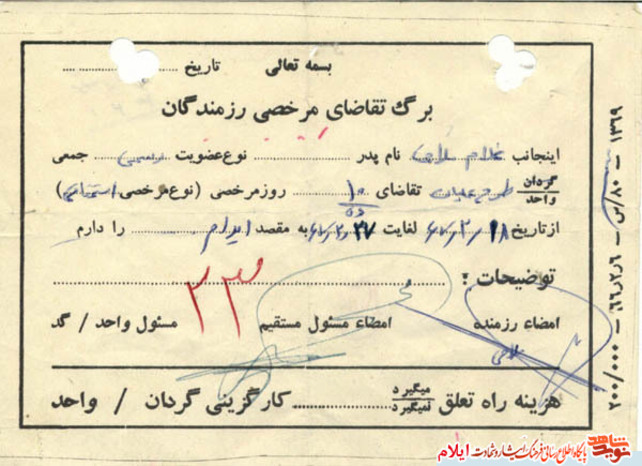 بسمه تعالی
تاریخ ........................
برگ تقاضای مرخصی رزمندگان
اینجانب غلام ملاحی نام پدر ........................ نوع عضویت رسمی جمعی
گردان / واحد طرح عملیات تقاضای ۱۰ ده روز مرخصی (نوع مرخصی استحقاقی)
از تاریخ ۶۷/۲/۱۸ لغایت ۶۷/۲/۲۷ به مقصد ایلام را دارم
توضیحات :
۲۳
امضاء رزمنده امضاء مسئول مستقیم مسئول واحد / گد
هزینه راه تعلق میگیرد / نمیگیرد .......... کارگزینی گردان / واحد
۲۰۰/۰۰۰ – ۶۶ر۲ر۶ – س/۸۰ – ۱۳۶۹
نوید شاهد پایگاه اطلاع رسانی فرهنگ ایثار و شهادت ایلام